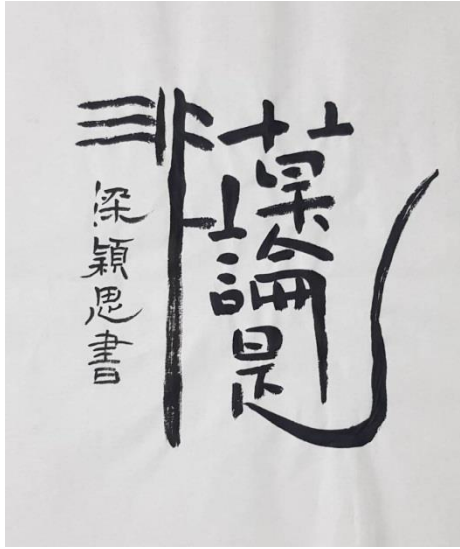 莫論是非
梁穎思書